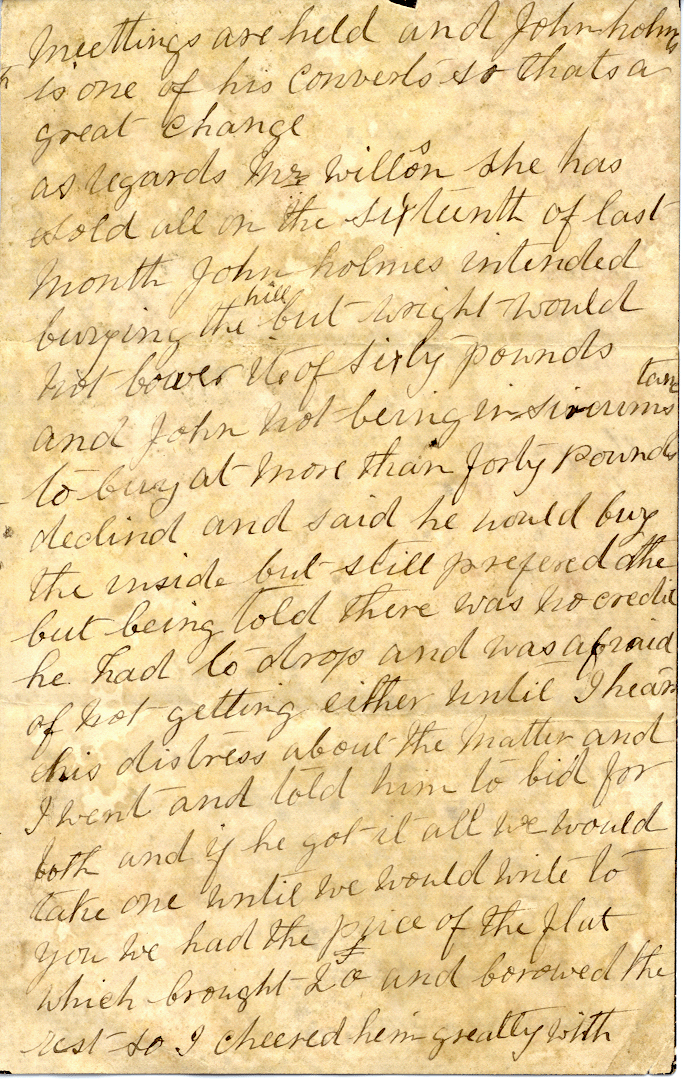 meettings are held and John holms
is one of his converts so thats a
great change
as regards Mrs Willson she has
sold all on the sixteenth of last
month John holmes intended
burying the hill but wright would
not bower it of sixty pounds
and John not being in sircumstane
to buy at more than forty pounds
declind and said he would buy
the inside but still prefered the
but being told there was no credit
he had to drop and was afraid
of not getting either until I heard
his distress about the matter and
I went and told him to bid for
both and if he got it all we would
take one until we would write to
you we had the price of the flat
which brought and borowed the
rest so I cheered him greatly with